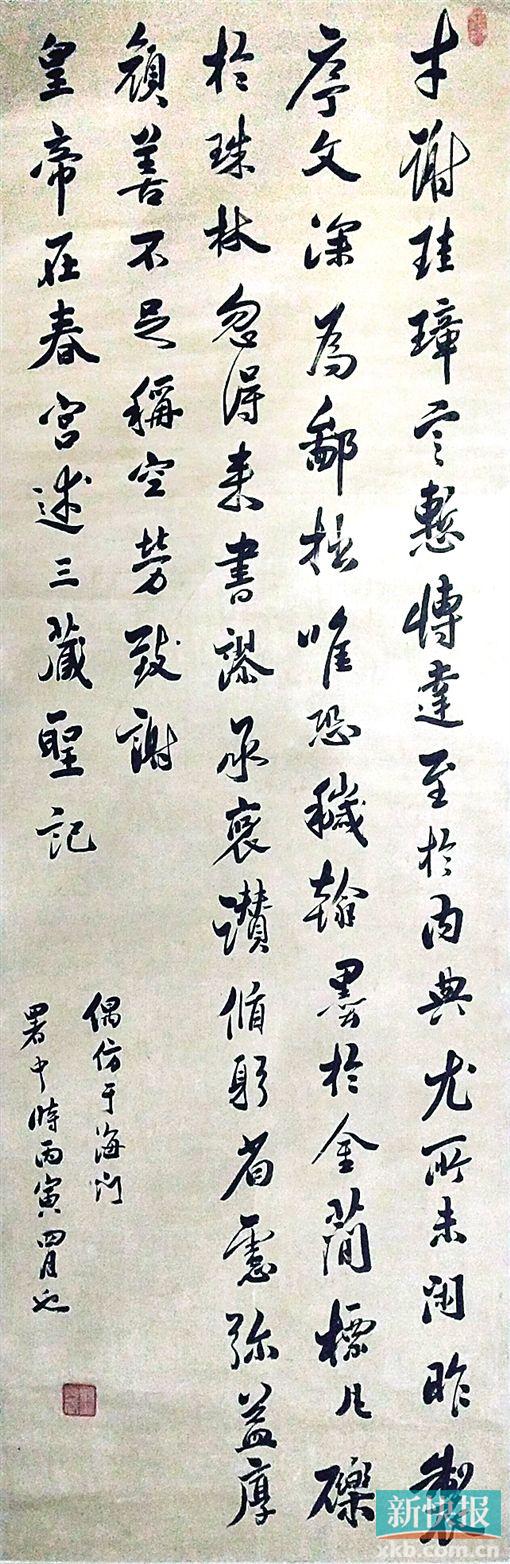 才謝珪璋言慙博達至於內典尤所未閑昨製
序文深為鄙拙唯恐穢翰墨於金簡標瓦礫
於珠林忽得來書謬承褒讚循躬省慮彌益厚
顏善不足稱空勞致謝
皇帝在春宮述三藏聖記
偶仿于海門
署中時丙寅四月也
新快报
xkb.com.cn